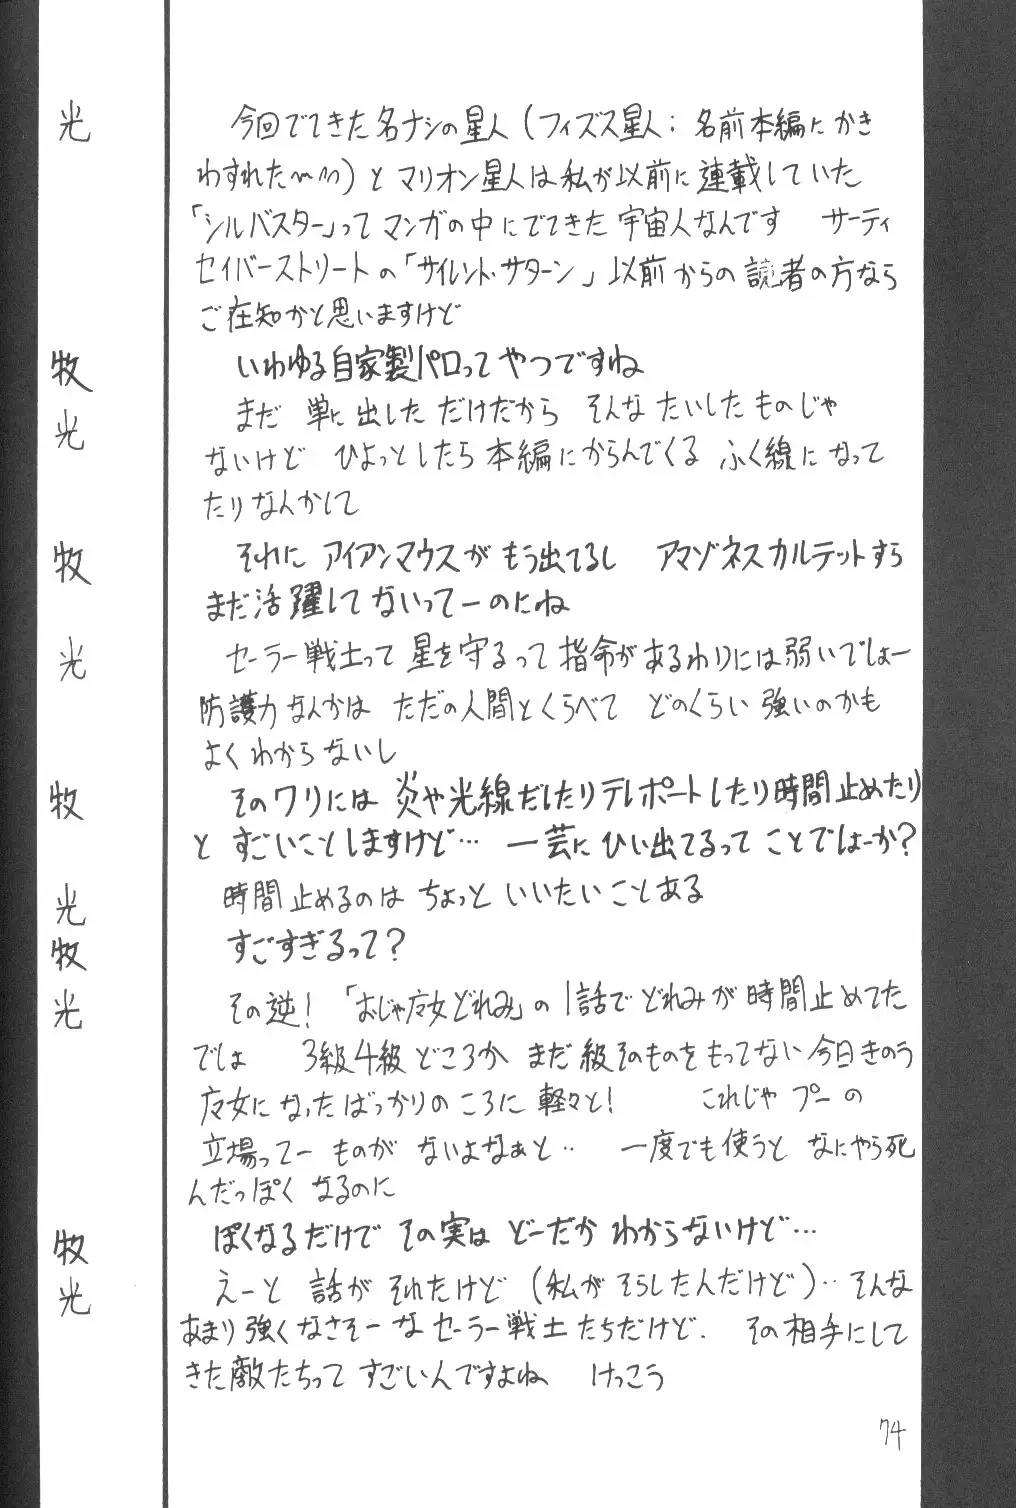 光 今回でてきた名ナシの星人(フィズス星人:名前本編にかき
わすれた^m^)とマリオン星人は私が以前に連載していた
「シルバスター」ってマンガの中にでてきた宇宙人なんです サーティ
セイバーストリートの「サイレント・サターン」以前からの読者の方なら
ご在知かと思いますけど
牧 いわゆる自家製パロってやつですね
光 まだ単に出しただけだから そんなたいしたものじゃ
ないけど ひょっとしたら本編にからんでくる ふく線になって
たりなんかして
牧 それに アイアンマウスがもう出てるし アマゾネスカルテットすら
まだ活躍してないってーのにね
光 セーラー戦士って星を守るって指命があるわりには弱いでしょー
防護力なんかは ただの人間とくらべて どのくらい強いのかも
よくわからないし
牧 そのワリには炎や光線だしたりテレポートしたり時間止めたり
と すごいことしますけど… 一芸にひい出てるってことでしょーか?
光 時間止めるのは ちょっと いいたいことある
牧 すごすぎるって?
光 その逆! 「おじゃ魔女どれみ」の1話でどれみが時間止めてた
では 3級4級どころか まだ級そのものをもってない今日きのう
魔女になったばっかりのころに軽々と! これじゃ プーの
立場ってーものがないよなぁと‥ 一度でも使うと なにやら死
んだっぽくなるのに
牧 ぽくなるだけで その実は どーだか わからないけど…
光 えーと 話がそれたけど (私がそらしたんだけど)‥そんな
あまり強くなさそーなセーラー戦士たちだけど. その相手にして
きた敵たちって すごいんですよね けっこう
74